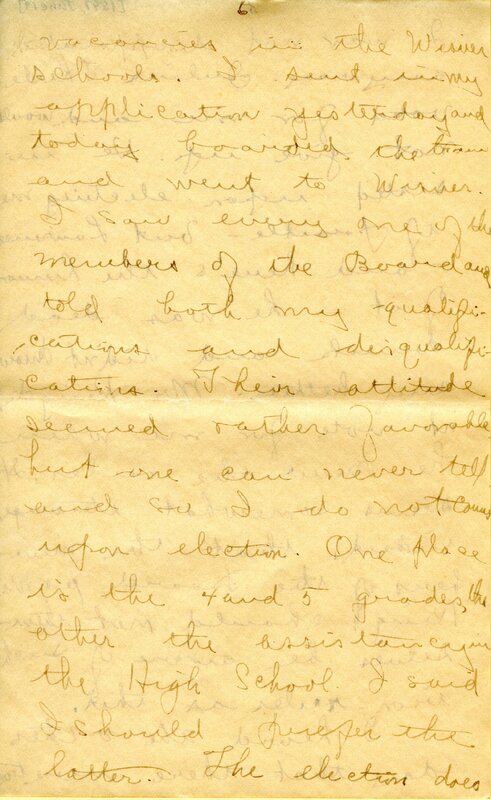 6
vacancies in the Wisner
schools. I sent in my
application yesterday and
today boarded the train
and went to Wisner.
I saw every one of the
members of the Board and
told both my qualifi-
cations and disqualifi-
cations. Their attitude
seemed rather favorable
but one can never tell
and so I do not count
upon election. One place
is the 4 and 5 grades, the
other the assistancy in
the High School. I said
I should prefer the
latter. The election does